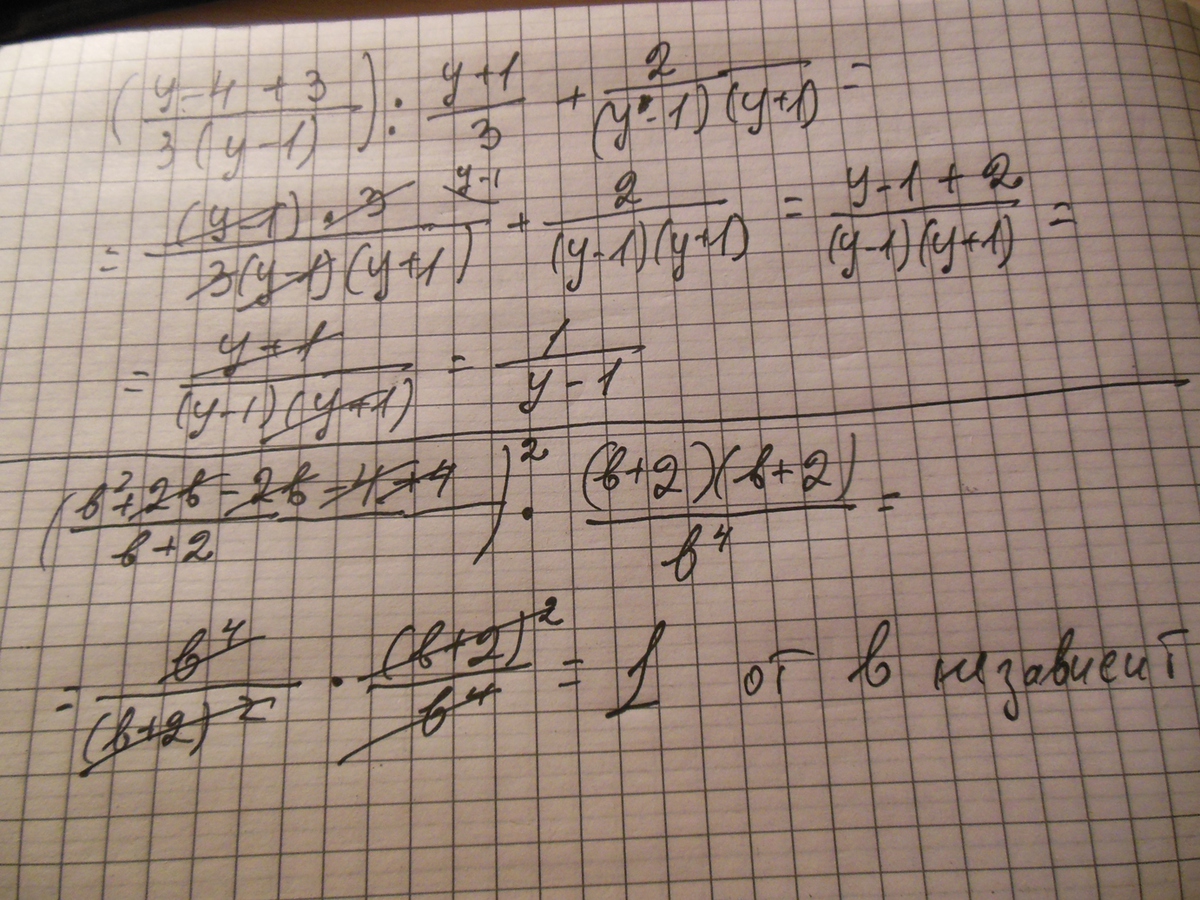 ((y-4+3)/(3(y-1))) : (y+1)/3 + 2/((y-1)(y+1)) =
= ((y-1)·3)/(3(y-1)(y+1)) y-1 + 2/((y-1)(y+1)) = (y-1+2)/((y-1)(y+1)) =
= (y+1)/((y-1)(y+1)) = 1/(y-1)
((в²+2в-2в-4+4)/(в+2))² · ((в+2)(в+2))/в⁴ =
= в⁴/(в+2)² · (в+2)²/в⁴ = 1 от в независит